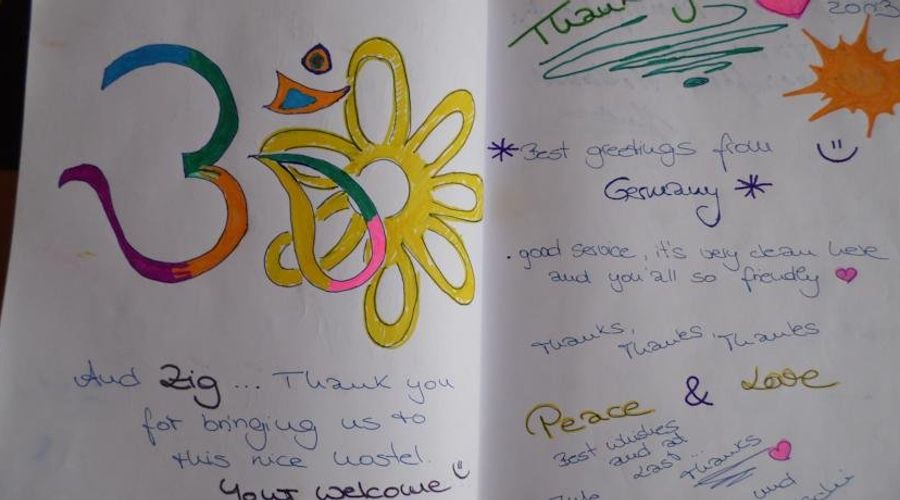 And Zig... Thank you
for bringing us to
this nice hostel.
Your welcome
2013
*Best greetings from
Germany *
. good service, it's very clean here
and you'all so friendly
Thanks, Thanks, Thanks
Peace & Love
Best wishes
and at
last... Thanks
und